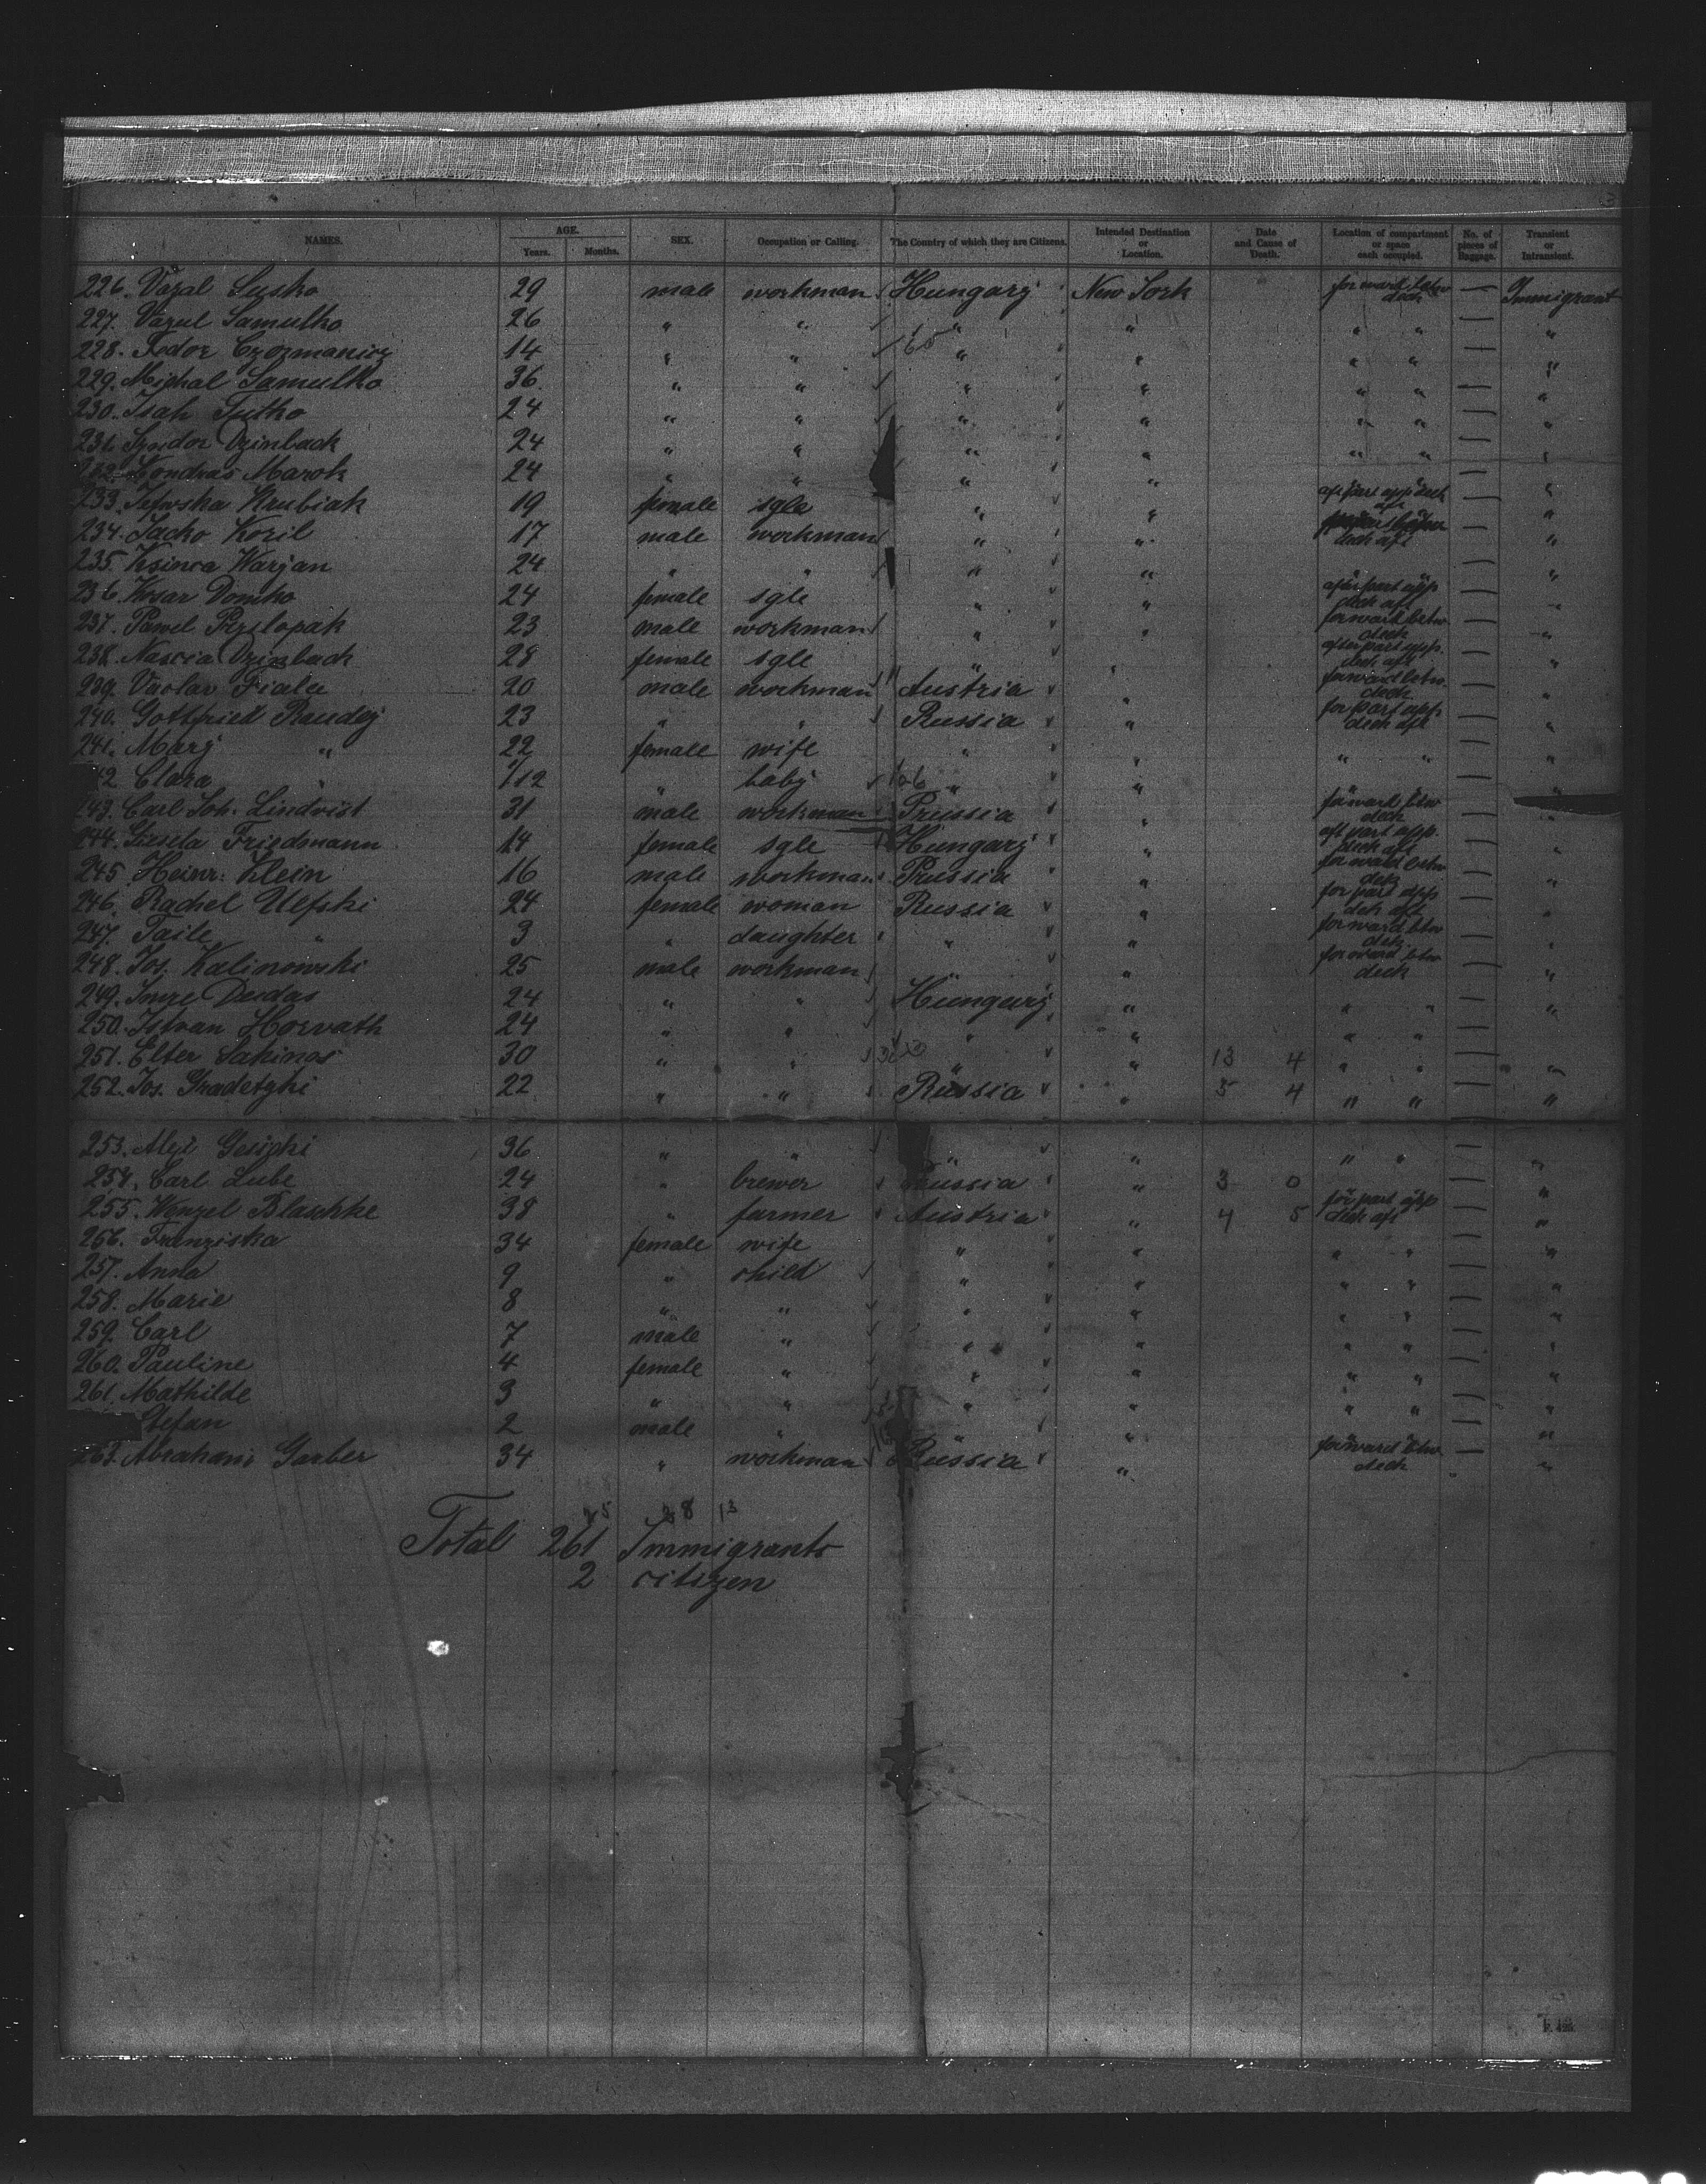 NAMES. AGE. Years. Months. SEX. Occupation or Calling. The Country of which they are Citizens. Intended Destination or Location. Date and Cause of Death. Location of compartment or space each occupied. No. of pieces of Baggage. Transient or Intransient.
226. Vazal Susko 29 male workman Hungary New York forward betw deck — Immigrant
227. Vazul Samulko 26 " " " " " " — "
228. Fedor 14 " " " " " " — "
229. Michal Samulko 36 " " " " " " — "
230. Isak Futko 24 " " " " " " — "
231. Dzinback 24 " " " " " " — "
232. Kondras Marok 24 " " " " — "
233. Krubiak 19 female sgle " " aft part upp deck aft — "
234. Jacko Kozil 17 male workman " " deck aft — "
235. Ksinca Warjan 24 " " " " — "
236. Kosar Domko 24 female sgle " " after part upp deck aft — "
237. Pawel Przslopak 23 male workman " " forward betw deck — "
238. Nascia Dzinback 28 female sgle " after part upp. deck aft — "
239. Vaclav Fiala 20 male workman Austria " forward betw. deck — "
240. Gottfried Raudej 23 " " Russia " for part upp. deck aft — "
241. Mary " 22 female wife " " " " — "
242 Clara " /12 " baby " " — "
243. Carl Joh. Lindvist 31 male workman Prussia " forward betw deck "
244. Gisela Friedmann 14 female sgle Hungary " aft part upp. deck aft — "
245 Heinr. Klein 16 male workman Prussia " forward betw deck — "
246. Rachel Uefski 24 female woman Russia " for part upp deck aft — "
247. Taile " 3 " daughter " " forward betw deck — "
248. Jos. Kalinowski 25 male workman " " forward betw deck — "
249. Imre Desdas 24 " " Hungary " " " — "
250. Istvan Horvath 24 " " " " " " — "
251. Elter Sakinas 30 " " " " 13 4 " " — "
252. Jos. Gradetzki 22 " " Russia " 5 4 " " — "
253. Gesicki 36 " " " " " " — "
254. Carl Lube 24 " brewer " 3 0 — "
255. Wenzel Blaschke 38 " farmer Austria " 4 5 for part upp deck aft — "
256. Franziska 34 female wife " " " " — "
257. Anna 9 " child " " " " — "
258. Marie 8 " " " " " " — "
259. Carl 7 male " " " " " — "
260. Pauline 4 female " " " " " — "
261. Mathilde 3 " " " " " " — "
Stefan 2 male " " — "
263. Abraham Garber 34 " workman Russia " forward betw deck — "
Total 261 Immigrants
2 citizen